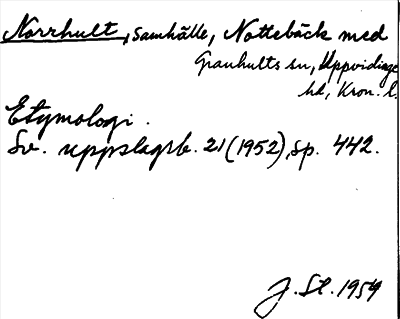 Norrhult, samhälle, Nottebäck med
Granhults sn, Uppvidinge
hd, Kron. l.
Etymologi.
Sv. uppslagsb. 21 (1952), sp. 442.
J. St. 1954